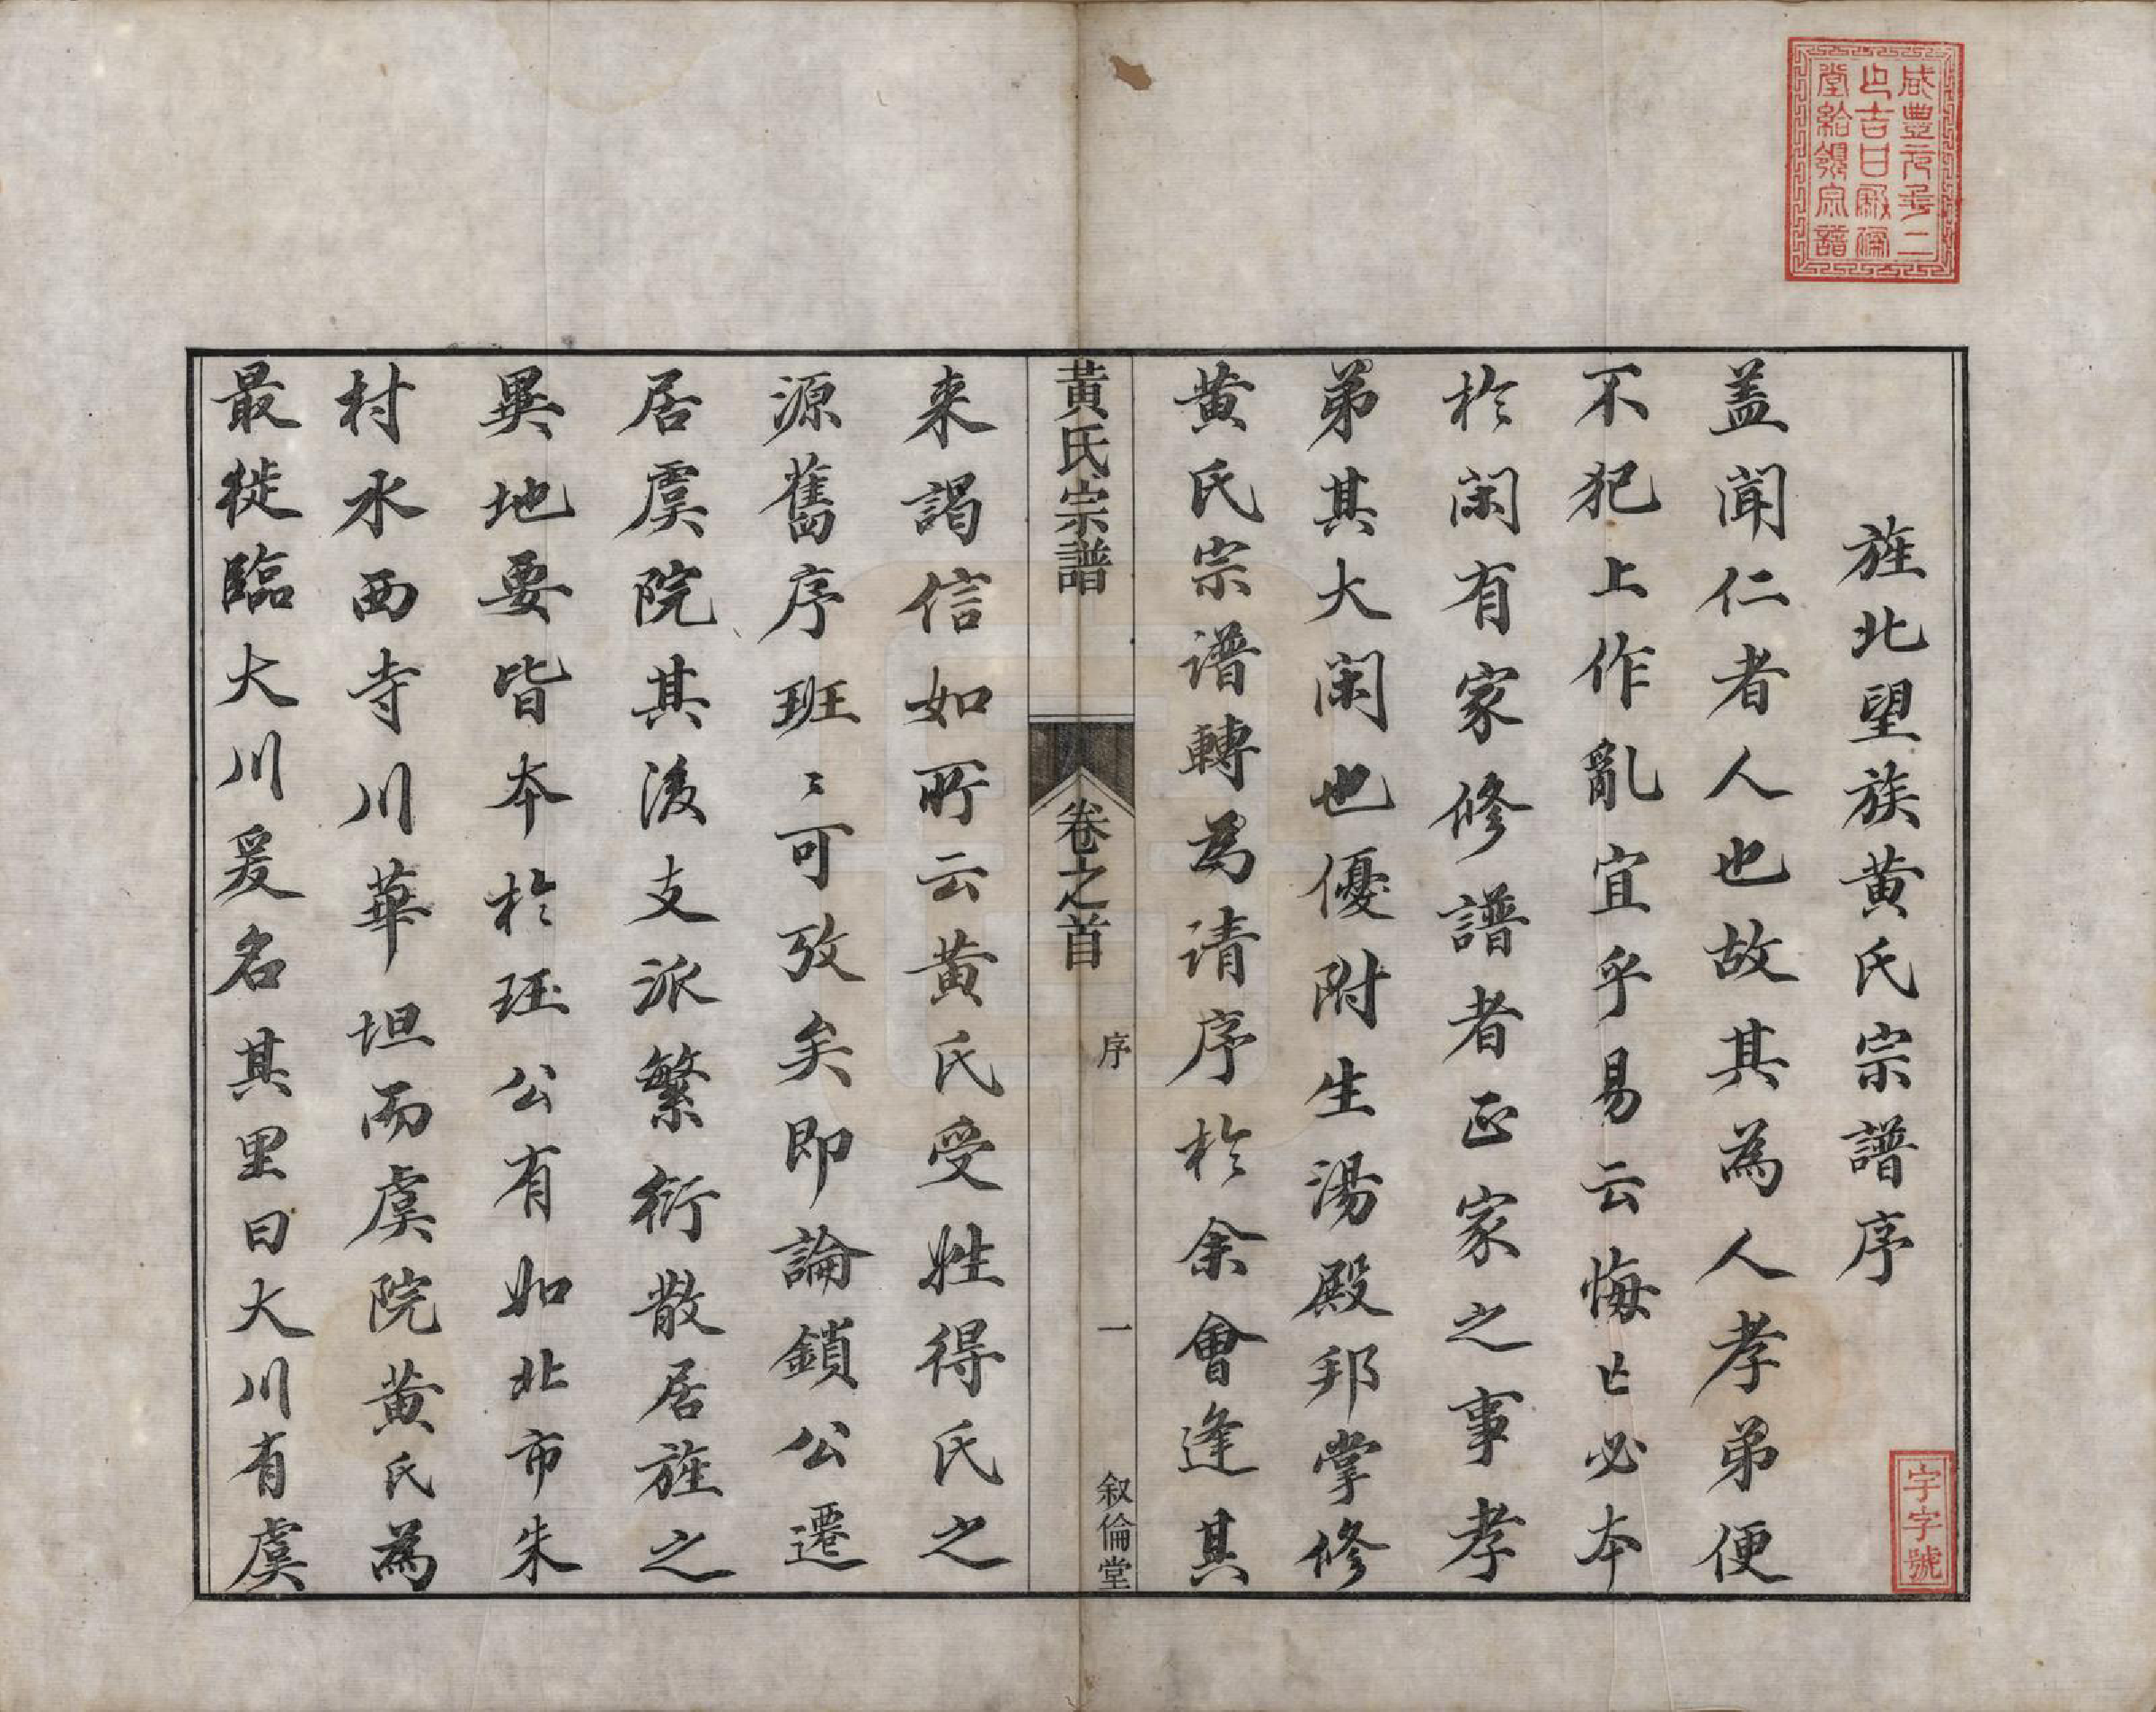 旌北望族黄氏宗譜序
盖聞仁者人也故其為人孝弟便
不犯上作亂宜乎易云悔亡必本
於閑有家修譜者正家之事孝
弟其大閑也優附生湯殿邦掌修
黄氏宗谱轉為请序於余會逢其
黃氏宗譜
卷之首
序
一
叙倫堂
来謁信如所云黄氏受姓得氏之
源舊序班〻可攷矣即論鎖公遷
居虞院其後支派繁衍散居旌之
異地要皆本於珏公有如北市朱
村水西寺川華坦而虞院黄氏為
最徙臨大川爰名其里曰大川有虞
咸豐元年二
巳吉日叙倫
堂給領宗譜
字字號